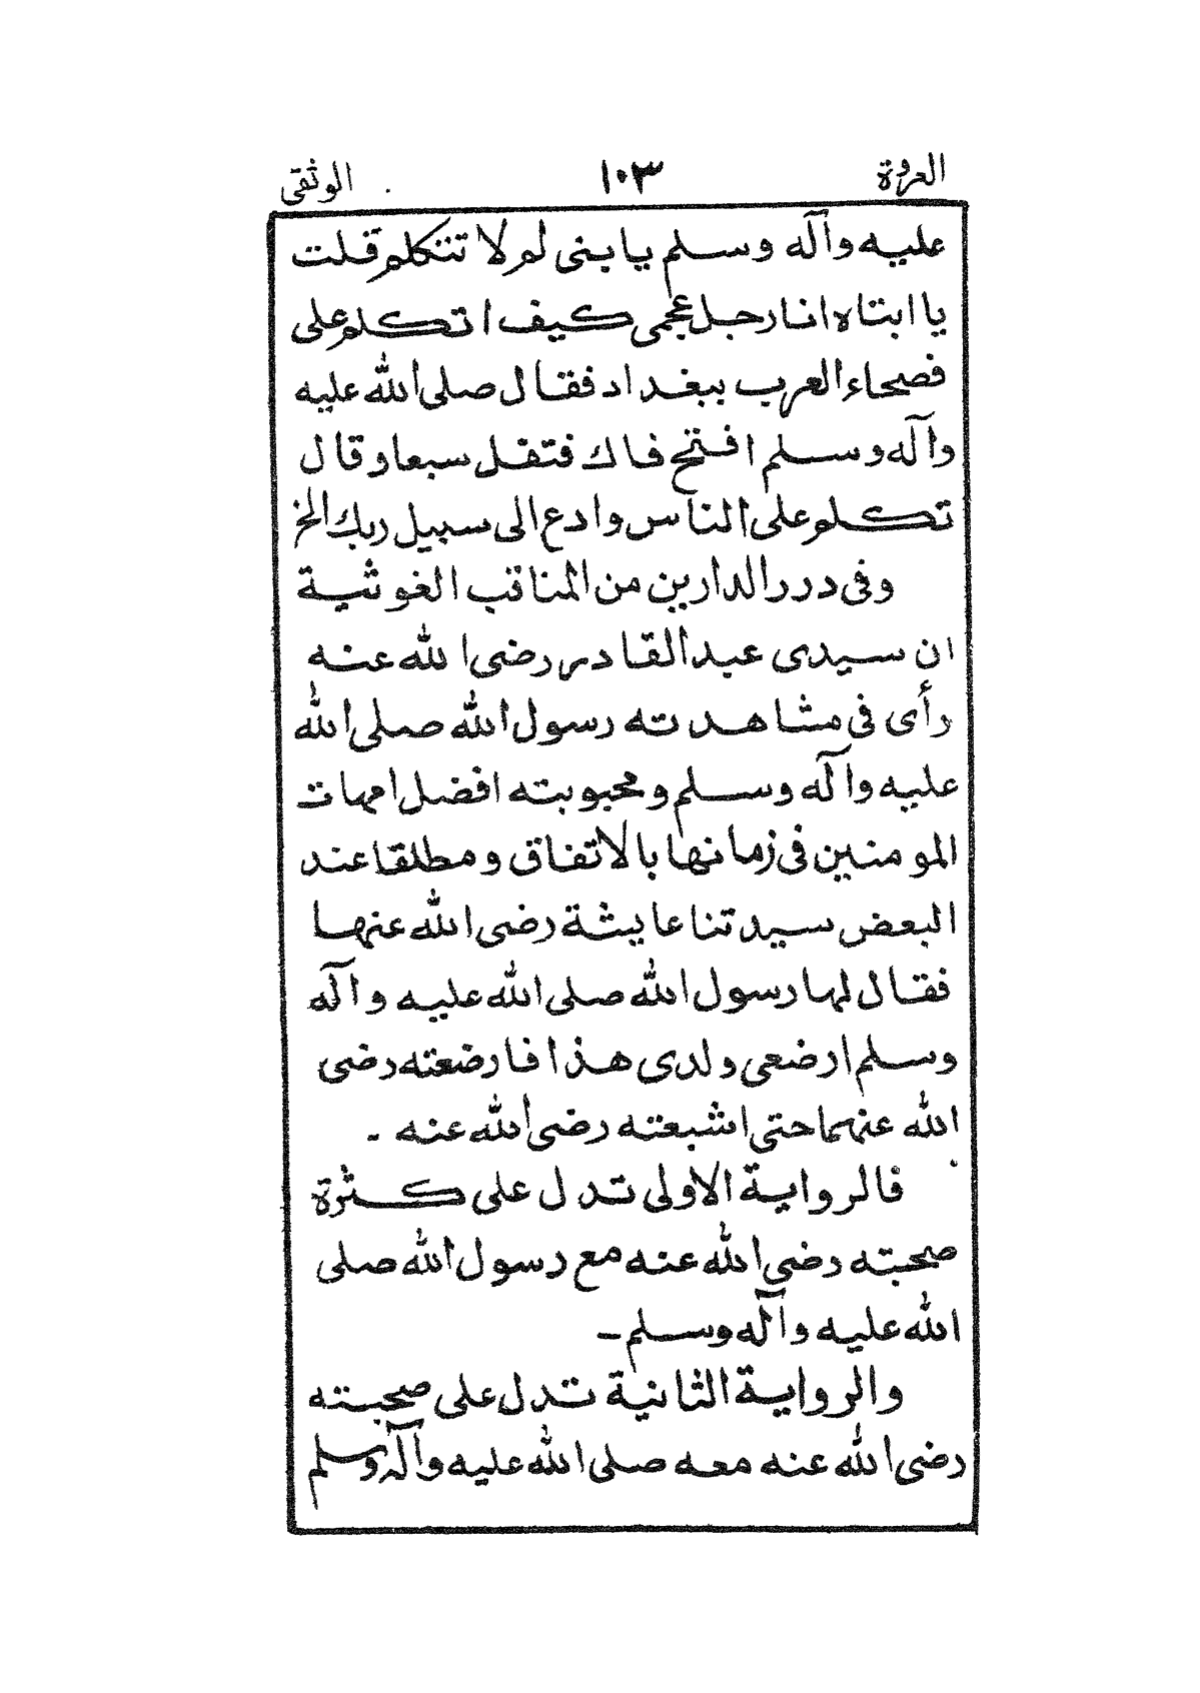 العروة ١٠٣ الوثقى
عليه وآله وسلم يا بنى لم لا تتكلم قلت
يا ابتاه انا رجل عجمى كيف اتكلم على
فصحاء العرب ببغداد فقال صلى الله عليه
وآله وسلم افتح فاك فتفل سبعا وقال
تكلم على الناس وادع الى سبيل ربك الخ
وفى درر الدارين من المناقب الغوثية
ان سيدى عبد القادر رضى الله عنه
رأى فى مشاهدته رسول الله صلى الله
عليه وآله وسلم ومحبوبته افضل امهات
المومنين فى زمانها بالاتفاق ومطلقا عند
البعض سيدتنا عايشة رضى الله عنها
فقال لها رسول الله صلى الله عليه وآله
وسلم ارضعى ولدى هذا فارضعته رضى
الله عنهما حتى اشبعته رضى الله عنه -
فالرواية الاولى تدل على كثرة
صحبته رضى الله عنه مع رسول الله صلى
الله عليه وآله وسلم -
والرواية الثانية تدل على صحبته
رضى الله عنه معه صلى الله عليه وآله وسلم